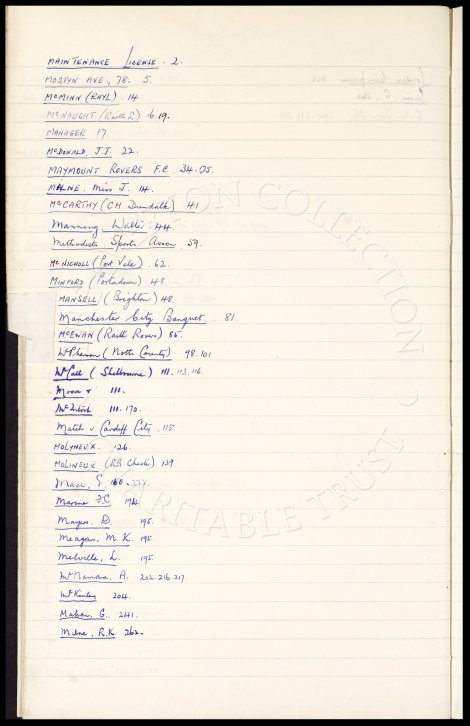 MAINTENANCE LICENSE . 2.
MOSTYN AVE., 78. 5.
McMINN (RHYL) . 14
McNAUGHT (Raith R) 6.19.
MANAGER 17.
McDONALD, J.J. 22.
MAYMOUNT ROVERS F.C. 34.
MILNE, Miss J. 14.
McCARTHY (CH Dundalk) 41
Manning, Walter. 44.
Methodists Sports Assoc 59.
McNICHOLL (Port Vale) . 62.
MINFORD (Portadown) 48
MANSELL (Brighton) 48.
Manchester City Banquet . 81.
McEWAN (Raith Rovers) 85.
McPherson (Notts County) 98.101
McCall (Shelbourne) 111. 113. 116.
Moor 111.
McIntosh 111. 170.
Match v Cardiff City. 115
MOLYNEUX. 126.
MOLINEUX (RB Chester) 139.
160.
Marine F.C. 194.
Mayers, D. 195.
Meagan, M. K. 195.
Melville, L. 195.
McNamara, A. 202. 216. 217.
McKinley 204.
Mahon, G. 241.
Milne, R.K. 262.
CHARITABLE TRUST
COLLECTION